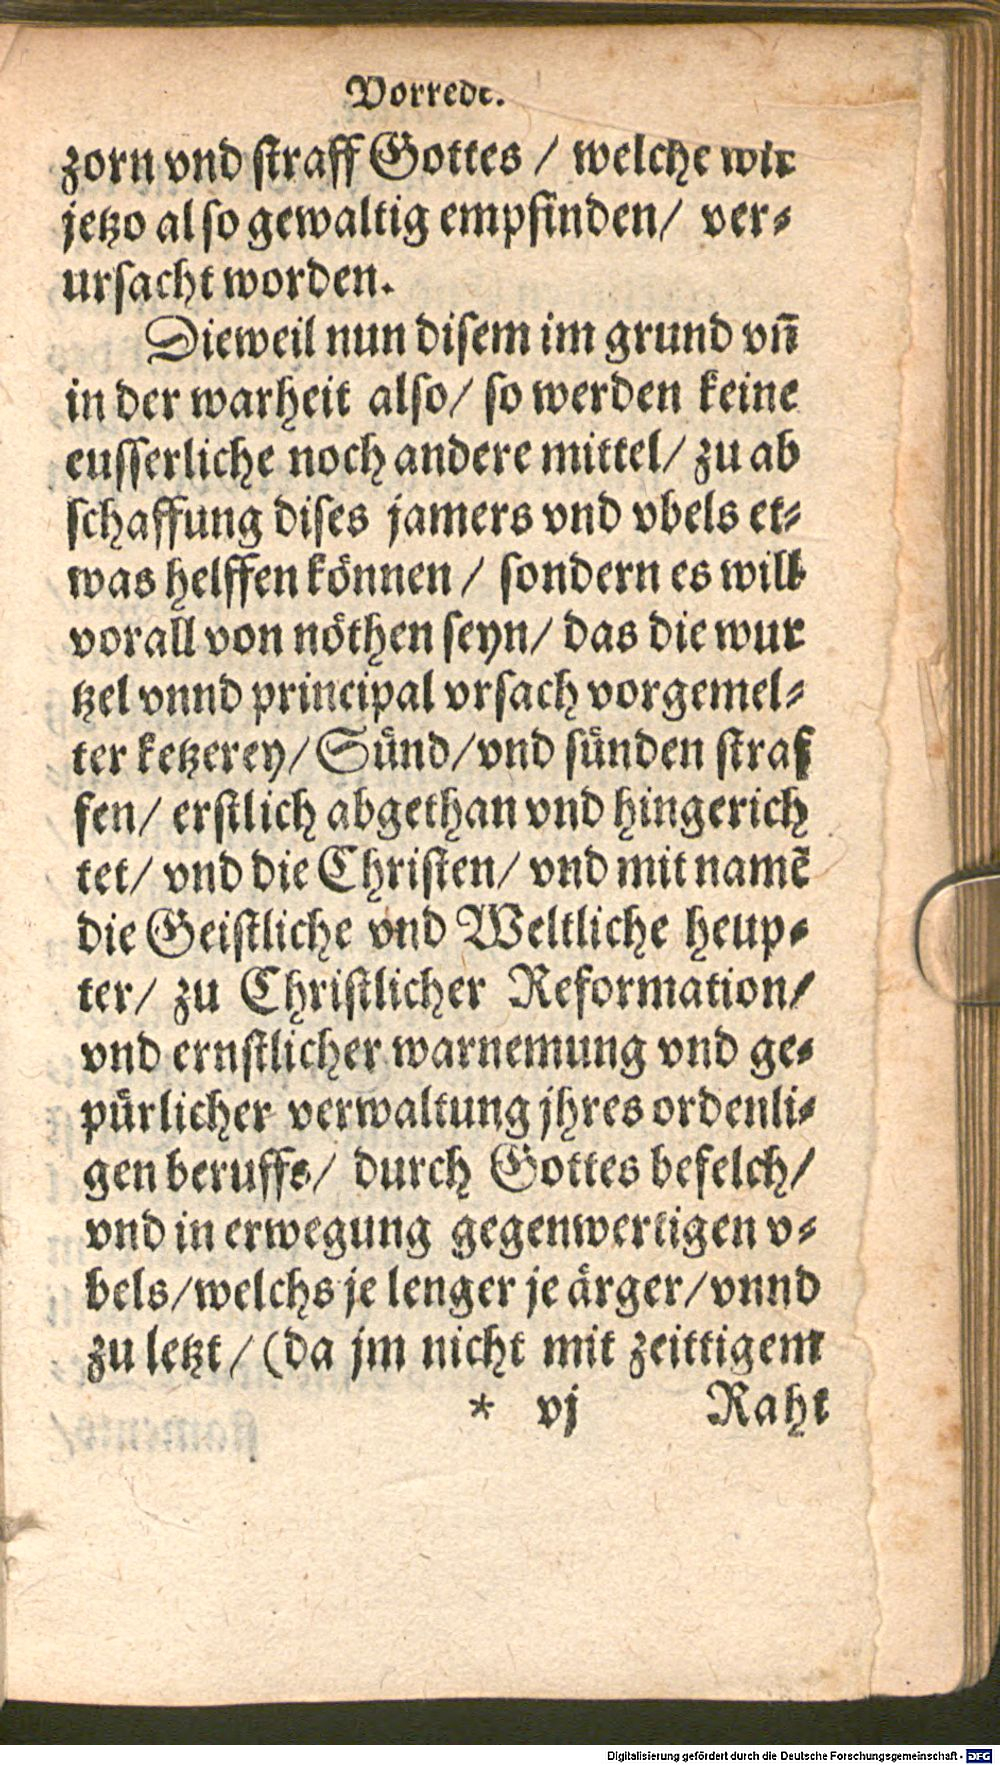 Vorrede.
zorn vnd straff Gottes / welche wir
jetzo also gewaltig empfinden/ ver-
ursacht worden.
Dieweil nun disem im grund vñ
in der warheit also/ so werden keine
eusserliche noch andere mittel/ zu ab
schaffung dises jamers vnd vbels et-
was helffen können / sondern es will
vorall von nöthen seyn/ das die wur
tzel vnnd principal vrsach vorgemel-
ter ketzerey/ Sünd/vnd sünden straf
fen/ erstlich abgethan vnd hingerich
tet/ vnd die Christen/ vnd mit namẽ
die Geistliche vnd Weltliche heup-
ter/ zu Christlicher Reformation/
vnd ernstlicher warnemung vnd ge-
pürlicher verwaltung jhres ordenli-
gen beruffs/ durch Gottes befelch/
vnd in erwegung gegenwertigen v-
bels/welchs je lenger je ärger/vnnd
zu letzt / (da jm nicht mit zeittigem
* vj Raht
Digitalisierung gefördert durch die Deutsche Forschungsgemeinschaft - DFG